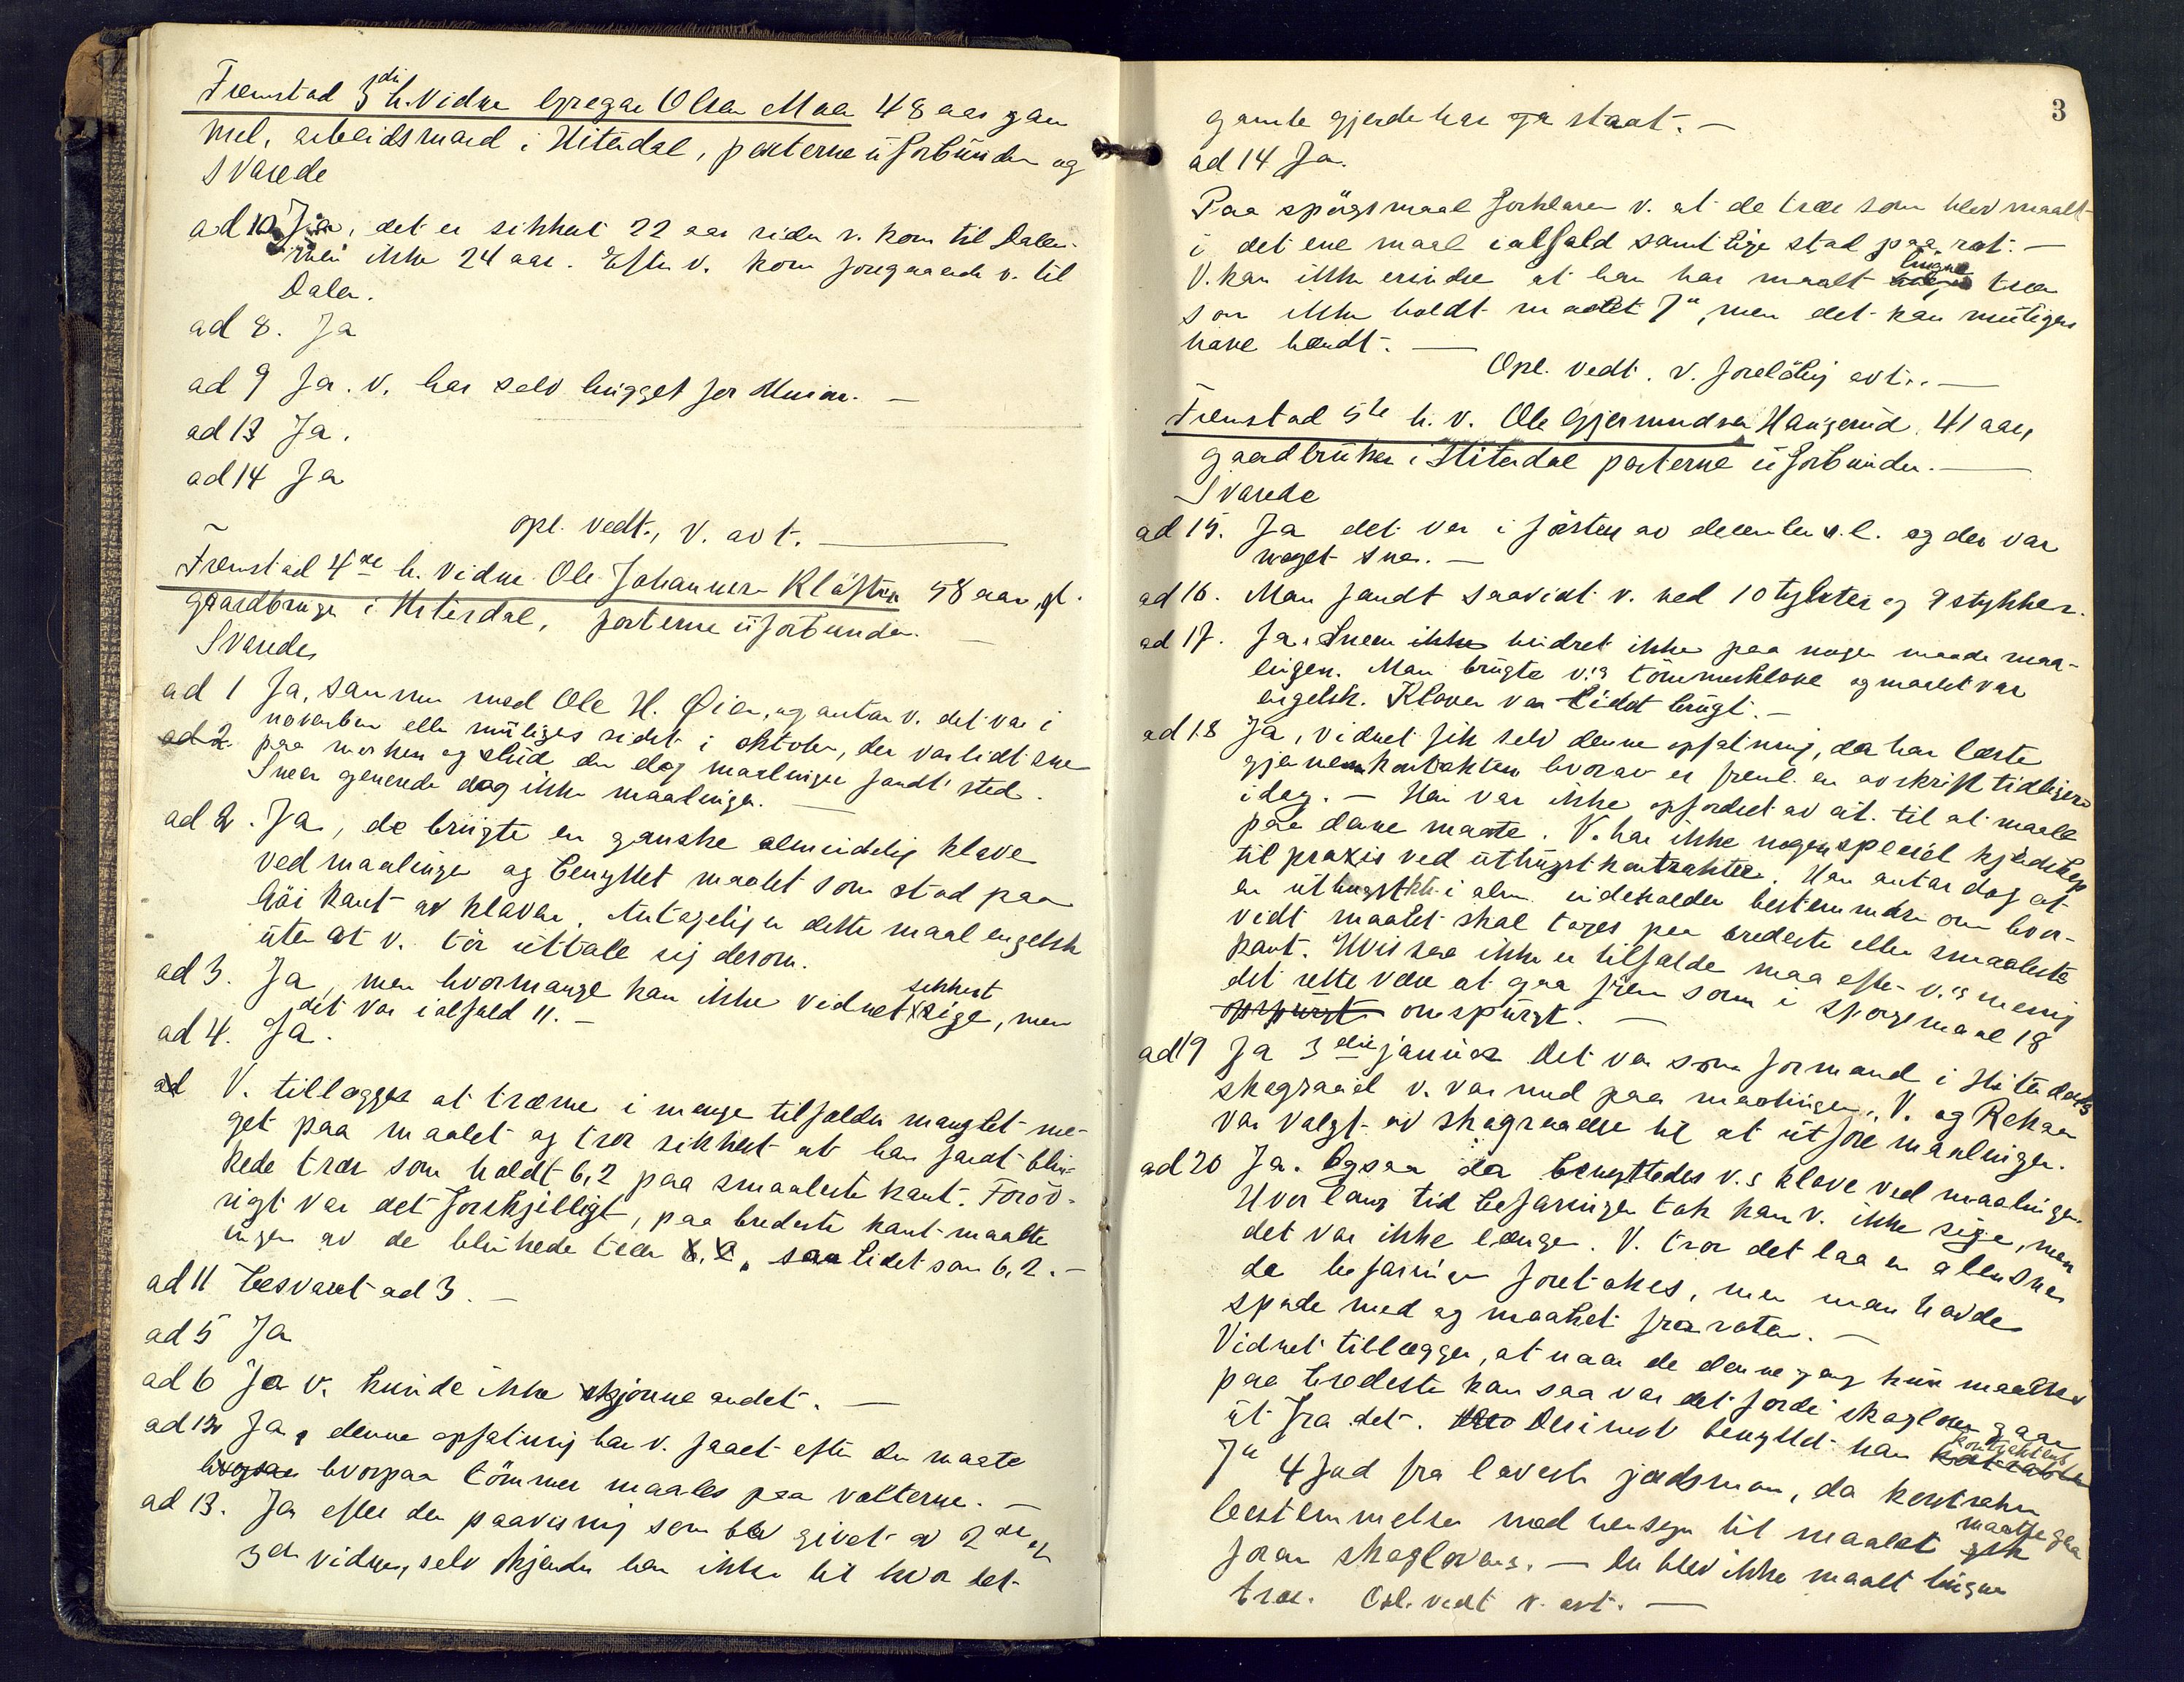 Fremstad 3di h. Vidne Gregar Olsen Moen 48 aar gam
mel, arbeidsmand i Hiterdal, parterne uforbunden og
Svarede
ad 10 Ja, det er sikkert 22 aar siden v. kom til Dalen
men ikke 24 aar. Efter v. kom foregaaende v. til
Dalen.
ad 8. Ja
ad 9 Ja. v. har selv hugget for
ad 13 Ja.
ad 14 Ja
opl. vedt., v. avt.
Fremstad 4de h. Vidne Ole Johannesen Kløften 58 aar gl.
gaardbruger i Hiterdal, parterne uforbunden.
Svarede,
ad 1 Ja, sammen med Ole H. Øien, og antar v. det var i
november eller muligens sidst i oktober, der var lidt sne
ad 2 paa marken og slud den dag maalingen fandt sted.
Sneen generede dog ikke maalingen.
ad 2. Ja, de brugte en ganske almindelig klave
ved maalingen og benyttet maalet som stod paa
høikant av klaven. Antagelig er dette maal engelsk
uten at v. tør uttale sig derom.
ad 3. Ja, men hvormange kan ikke vidnet sikkert sige, men
det var ialfald 11.
ad 4. Ja.
ad V. tillægger at trærne i mange tilfælder manglet me-
get paa maalet og tror sikkert at han fandt blin-
kede trær som holdt 6,2 paa smaaleste kant. Forøv-
rigt var det forskjelligt, paa bredeste kant maalte
ingen av de blinkede trær saa lidet som 6,2.
ad 11 besvaret ad 3.
ad 5 Ja
ad 6 Ja v. kunde ikke skjønne andet.
ad 12 Ja, denne opfatning har v. faaet efter den maate
hvorpaa tømmer maales paa velterne.
ad 13. Ja efter den paavisning som blev givet av 2de og
3die vidne, selv kjendte han ikke til hvor det
3
gamle gjerde har gaa staat.
ad 14 Ja.
Paa spørgsmaal forklarer v. at de trær som blev maalt
i det ene maal ialfald samtlige stod paa rot.
V. kan ikke erindre at han har maalt hugne trær
som ikke holdt maalet 7", men det kan muligens
have hændt.
Opl. vedt. v. foreløbig avt.
Fremstad 5te h. v. Ole Gjermundsen Haugerud 41 aar,
gaardbruker i Hiterdal parterne uforbunden.
Svarede
ad 15. Ja det var i først av december s.l. og der var
noget sne.
ad 16. Man fandt saavidt v. ved 10 tylvter og 9 stykker.
ad 17. Ja. Sneen ikke hindret ikke paa nogen maade maa-
lingen. Man brugte v.s tømmerklave og maalet var
engelsk. Klaven var lidet brugt.
ad 18 Ja, vidnet fik selv denne opfatning, da han læste
gjennem kontrakten hvorav er freml. en avskrift tidligere
idag. - Han var ikke opfordret av cit. til at maale
paa denne maate. V. har ikke nogen speciel kjendskap
til praxis ved uthugstkontrakter. Han antar dog at
en uthugstktr. i alm. indeholder bestemmelse om hvor-
vidt maalet skal tages paa bredeste eller smaaleste
kant. Hvis saa ikke er tilfælde maa efter v.s mening
det rette være at gaa frem som i spørgsmaal 18
opspurgt omspurgt.
ad 19 Ja 3die januar. Det var som formand i Hiterdals
skograad v. var med paa maalingen. V. og Rekaa
var valgt av skograadet til at utføre maalingen.
ad 20 Ja. Ogsaa da benyttedes v.s klave ved maalingen.
Hvor lang tid befaringen tok kan v. ikke sige, men
det var ikke længe. V. tror det laa en alen sne
da befaringen foretokes, men man havde
spade med og maalet fra roten.
Vidnet tillægger, at naar de denne gang kun maaltes
paa bredeste kan saa var det fordi skogloven gaar
ut fra det. Derimot benyttet han kontraktens
7" 4 fod fra laveste jordsmon, da kontraktens
bestemmelser med hensyn til maalet maatte gaa
foran skoglovens. - Der blev ikke maalt hugne
trær. Opl. vedt v. avt.